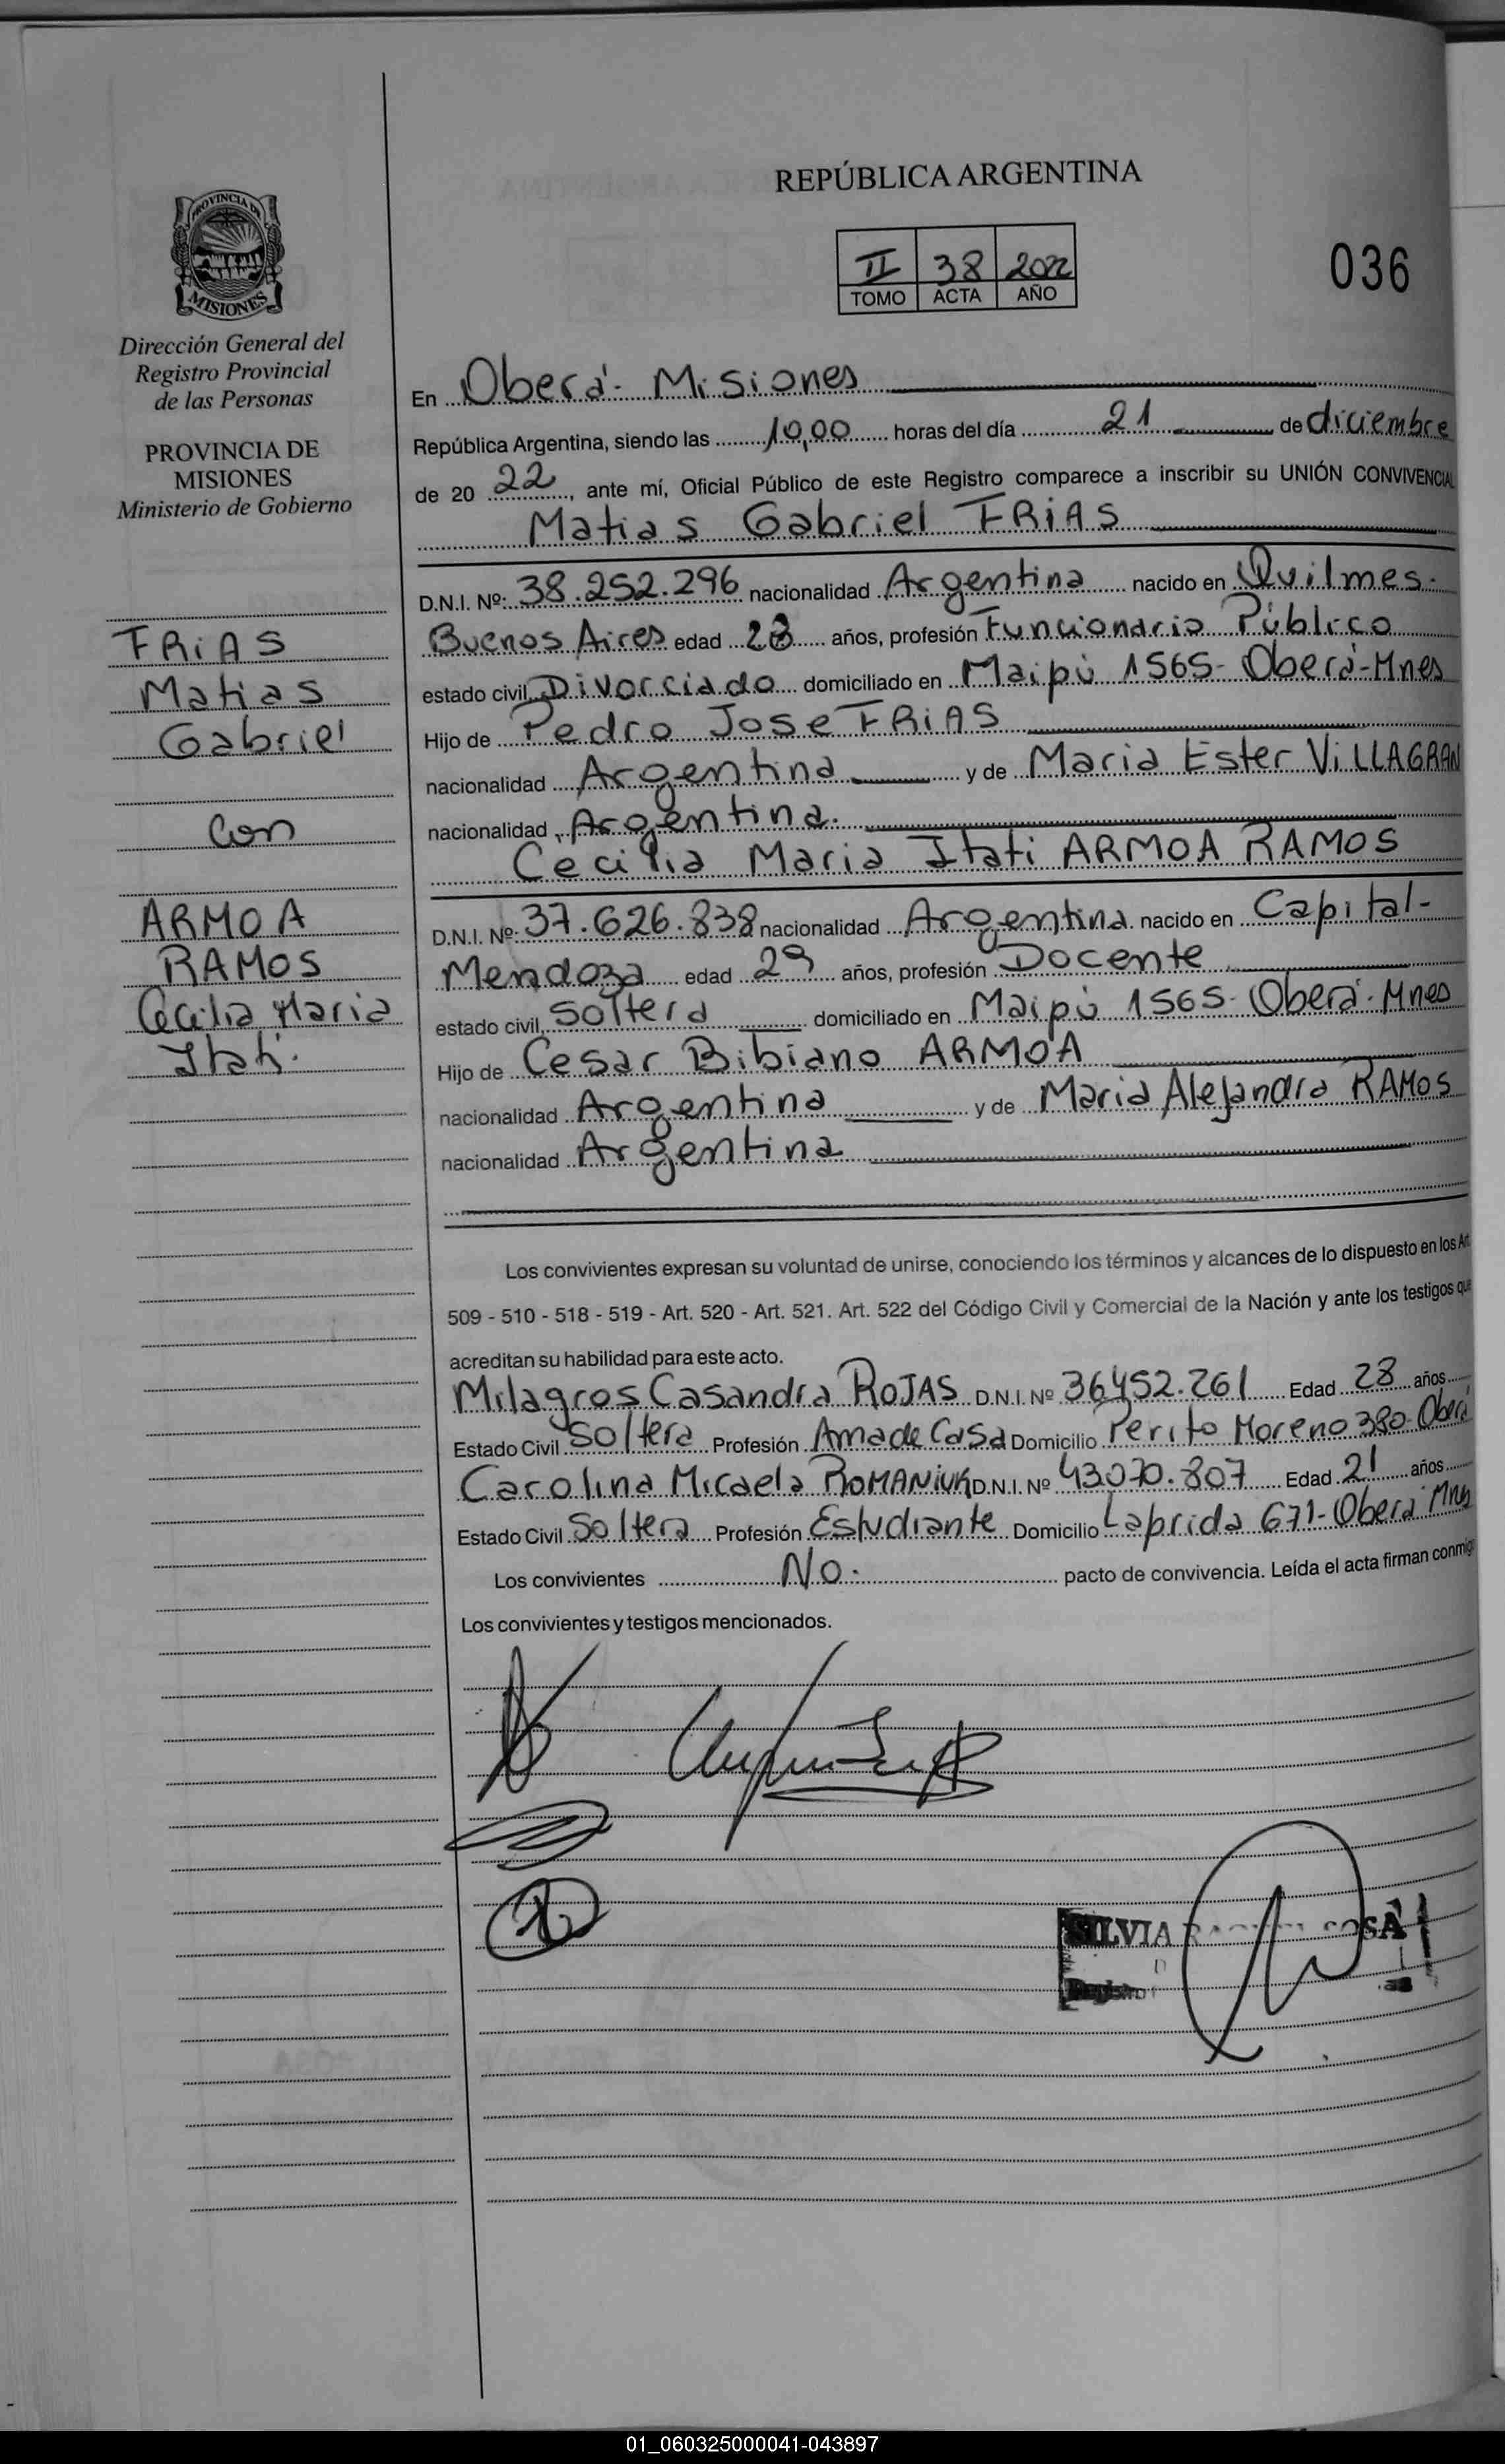 REPÚBLICA ARGENTINA
II 38 2022
TOMO ACTA AÑO
036
PROVINCIA DE
MISIONES
Dirección General del
Registro Provincial
de las Personas
PROVINCIA DE
MISIONES
Ministerio de Gobierno
FRiAS
Matias
Gabriel
Con
ARMOA
RAMOS
Cecilia Maria
Itati.
En Oberá- Misiones
República Argentina, siendo las 10,00 horas del día 21 de diciembre
de 20 22, ante mí, Oficial Público de este Registro comparece a inscribir su UNIÓN CONVIVENCIAL
Matias Gabriel FRiAS
D.N.I. Nº: 38.252.296 nacionalidad Argentina nacido en Quilmes-
Buenos Aires edad 28 años, profesión Funcionario Público
estado civil, Divorciado domiciliado en Maipú 1565- Oberá-Mnes
Hijo de Pedro Jose FRiAS
nacionalidad Argentina y de Maria Ester ViLLAGRAN
nacionalidad Argentina.
Cecilia Maria Itati ARMOA RAMOS
D.N.I. Nº: 37.626.838 nacionalidad Argentina. nacido en Capital-
Mendoza edad 29 años, profesión Docente
estado civil, Soltera domiciliado en Maipú 1565- Oberá-Mnes
Hijo de Cesar Bibiano ARMOA
nacionalidad Argentina y de Maria Alejandra RAMOS
nacionalidad Argentina
Los convivientes expresan su voluntad de unirse, conociendo los términos y alcances de lo dispuesto en los Art.
509 - 510 - 518 - 519 - Art. 520 - Art. 521. Art. 522 del Código Civil y Comercial de la Nación y ante los testigos que
acreditan su habilidad para este acto.
Milagros Casandra ROJAS D.N.I. Nº 36452.261 Edad 28 años
Estado Civil Soltera Profesión Ama de Casa Domicilio Perito Moreno 380-Oberá
Carolina Micaela ROMANiUK D.N.I. Nº 43070.807 Edad 21 años
Estado Civil Soltera Profesión Estudiante Domicilio Laprida 671-Oberá Mnes
Los convivientes No. pacto de convivencia. Leída el acta firman conmigo
Los convivientes y testigos mencionados.
SILVIA SOSA
01_060325000041-043897